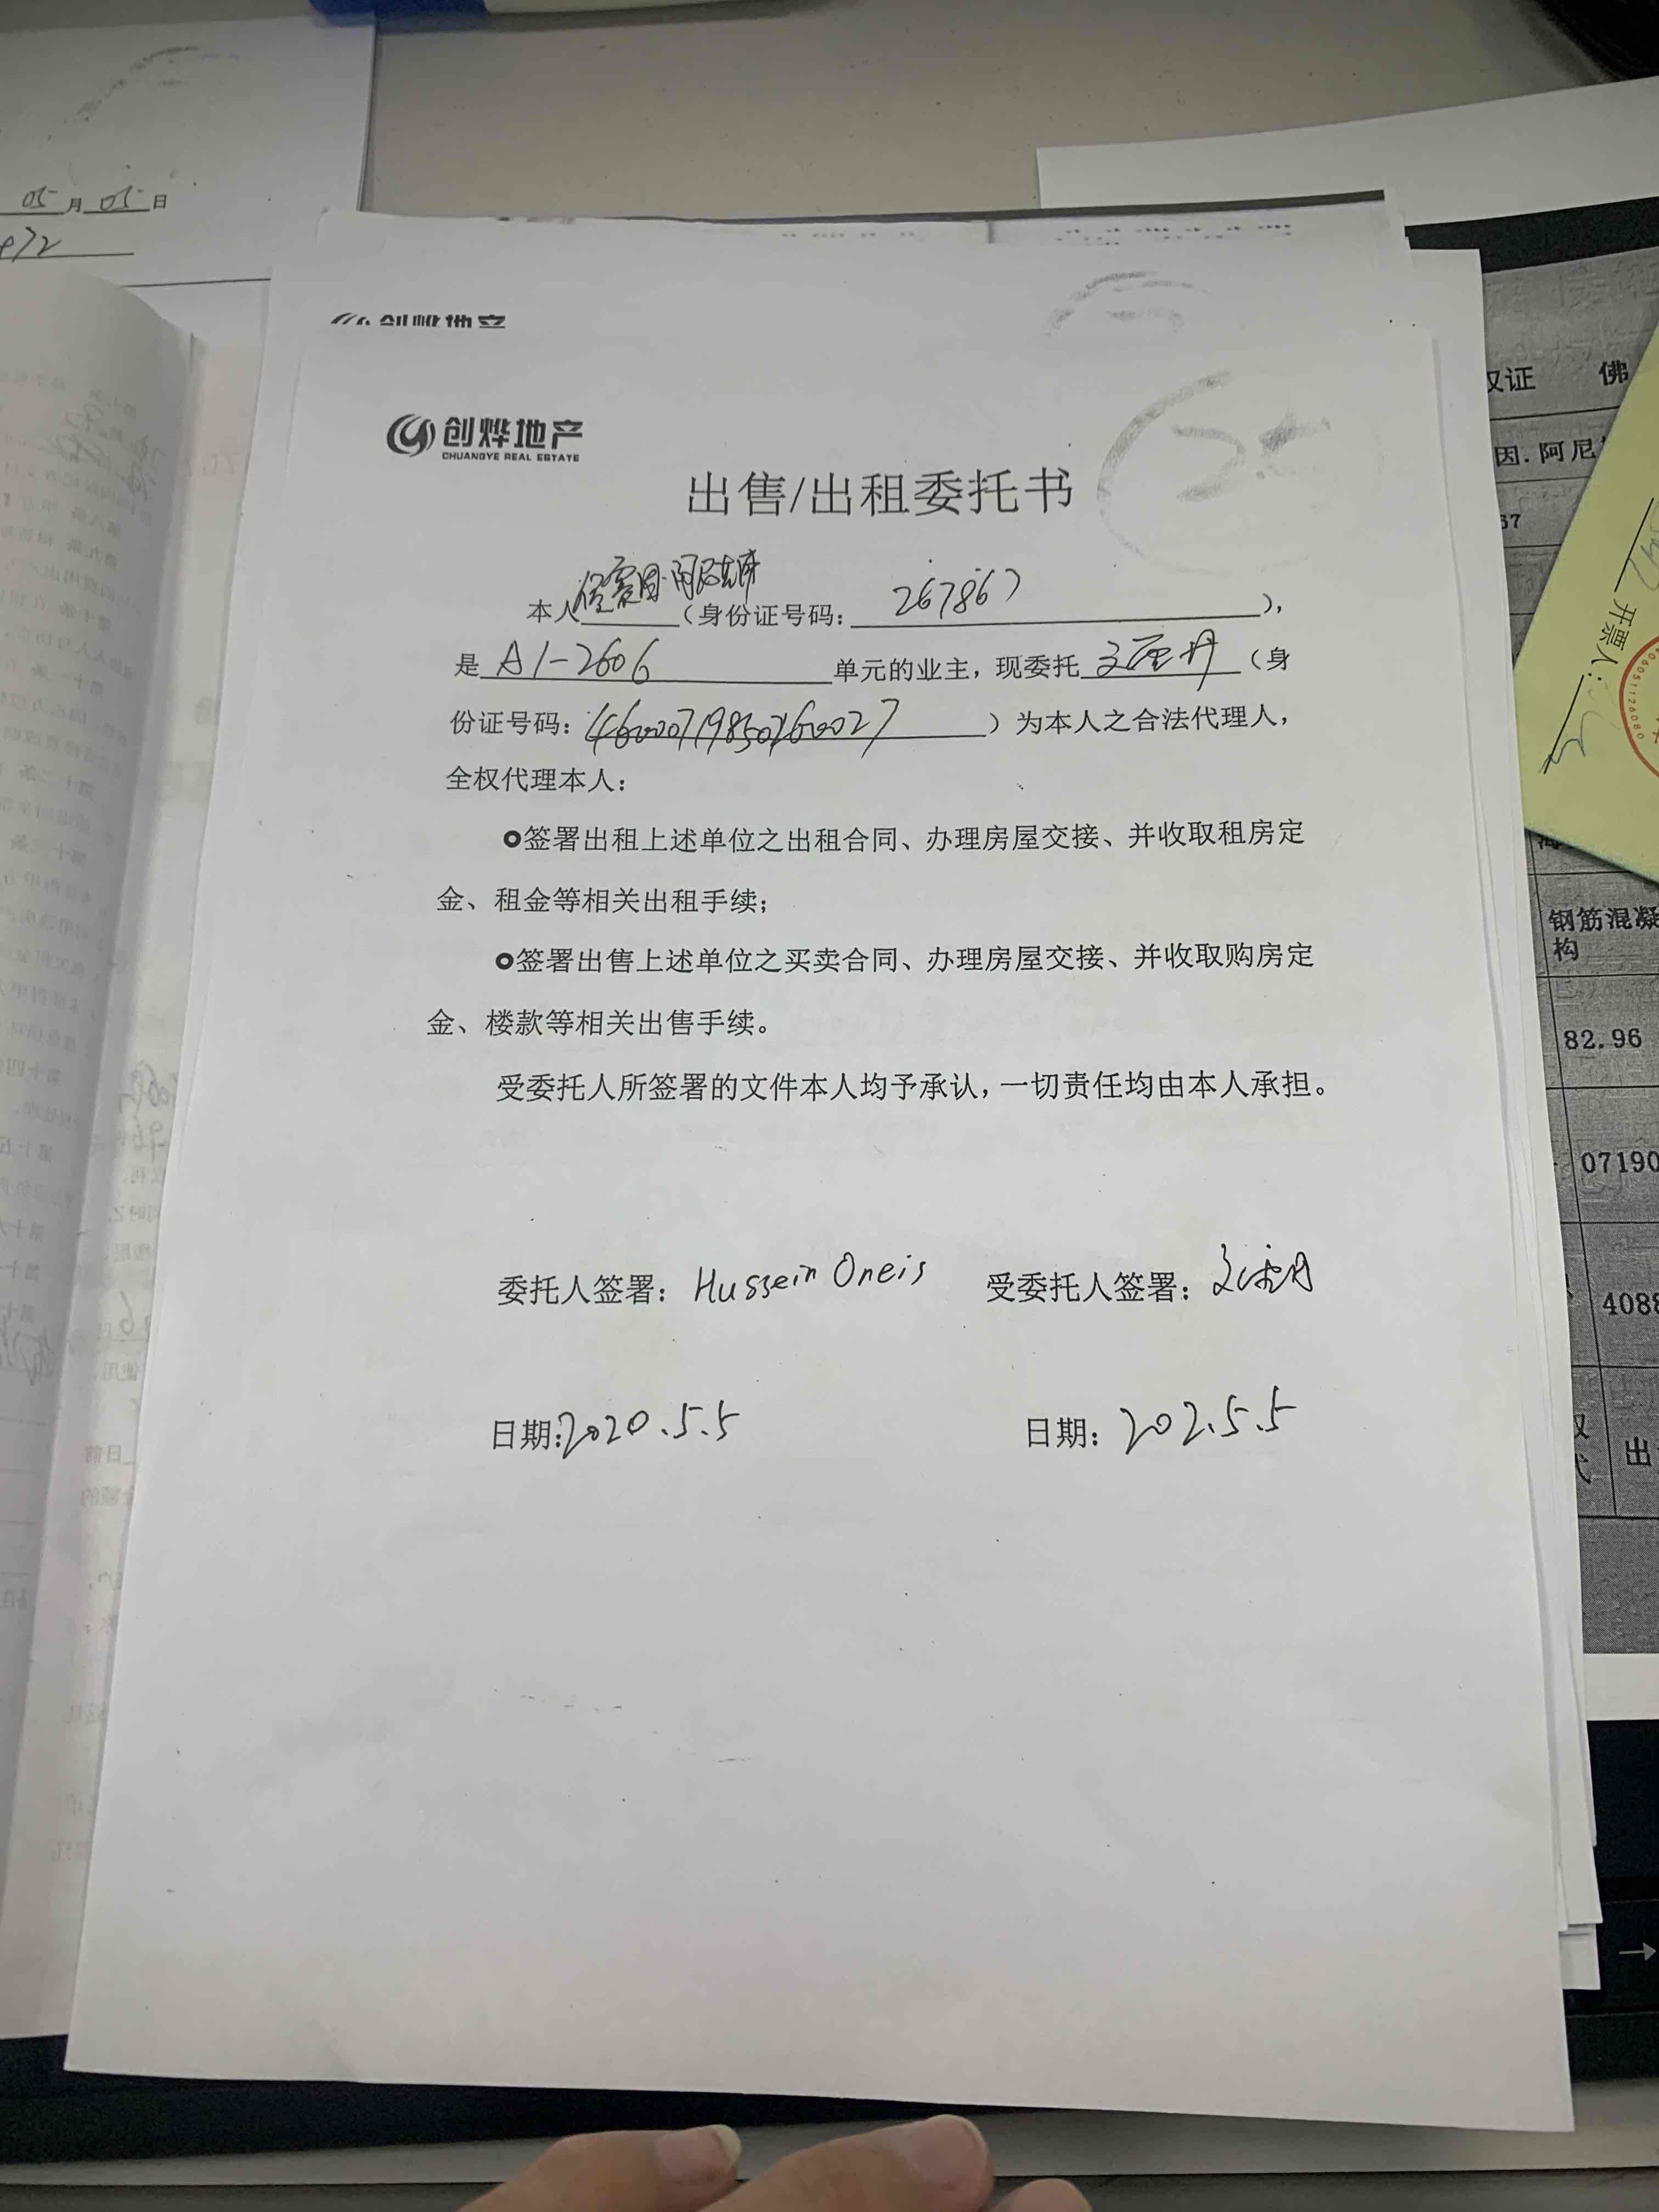 05月05日
创烨地产
CHUANGYE REAL ESTATE
出售/出租委托书
本人 因·阿尼 (身份证号码: 267867 ),
是 A1-2606 单元的业主，现委托 文 丹 (身
份证号码: 46000719850260027 ) 为本人之合法代理人,
全权代理本人:
签署出租上述单位之出租合同、办理房屋交接、并收取租房定
金、租金等相关出租手续;
签署出售上述单位之买卖合同、办理房屋交接、并收取购房定
金、楼款等相关出售手续。
受委托人所签署的文件本人均予承认，一切责任均由本人承担。
委托人签署: Hussein Oneis 受委托人签署:
日期:2020.5.5 日期: 202.5.5
权证 佛
因.阿尼
67
开票人:
钢筋混凝
构
82.96
07190
4088
出